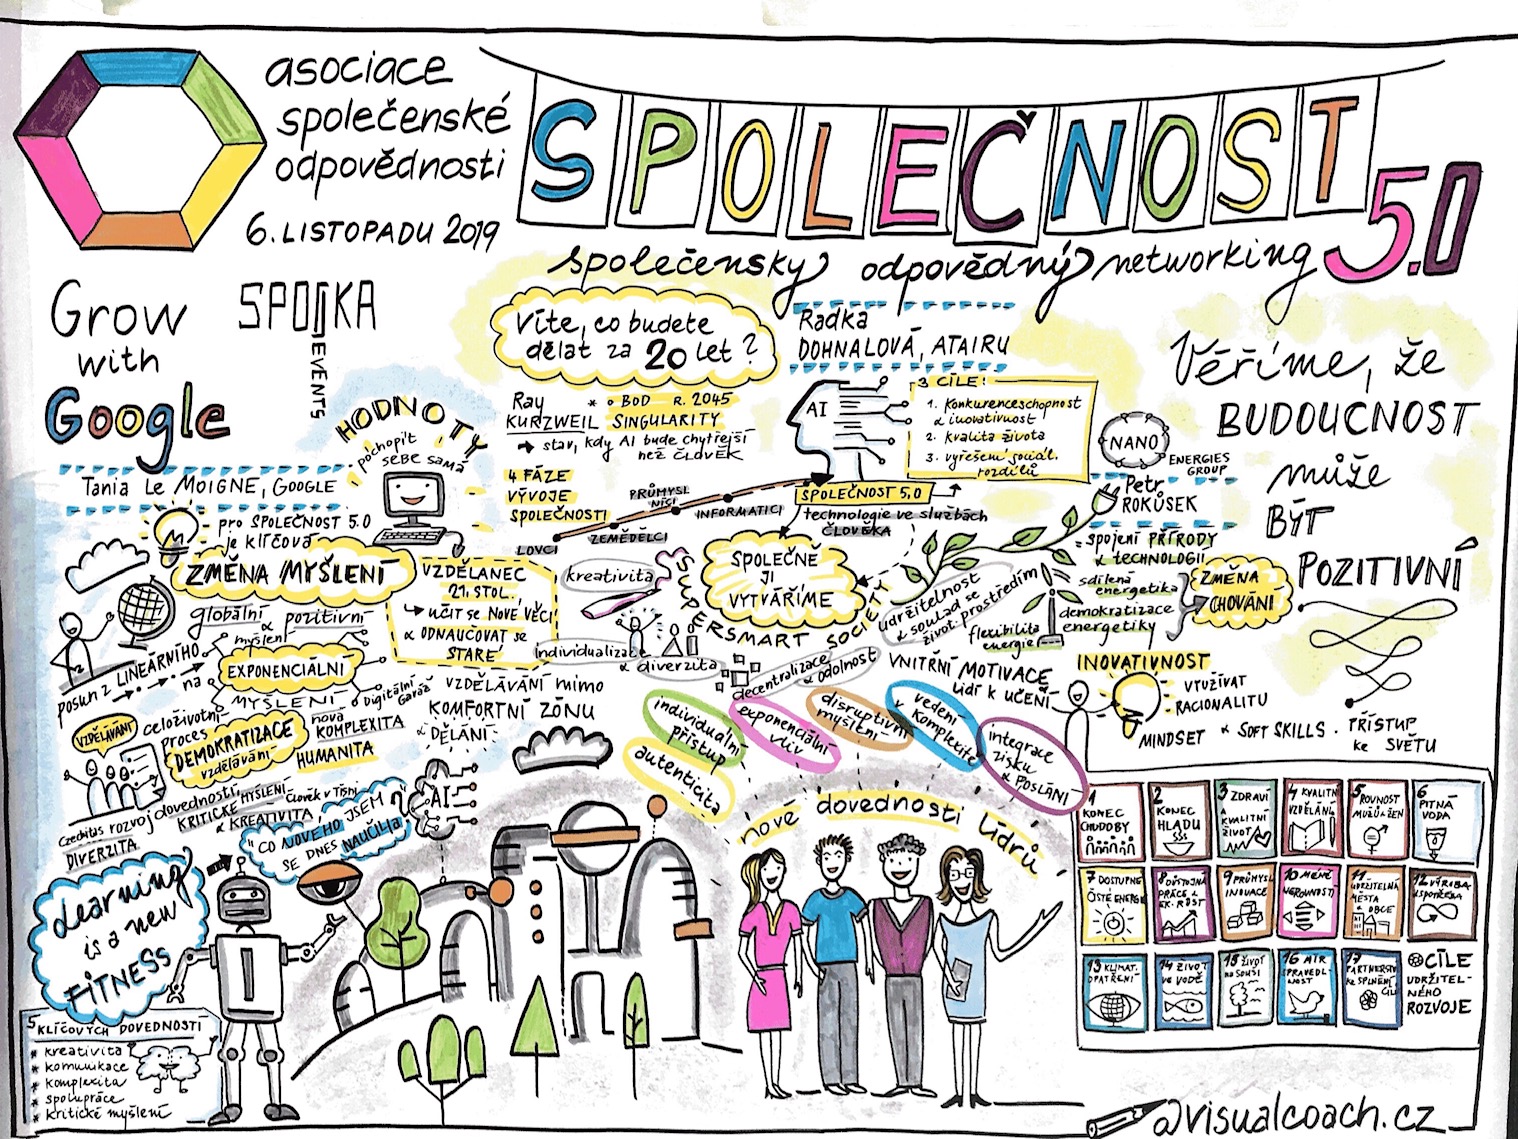 asociace
společenské
odpovědnosti
6. LISTOPADU 2019
SPOLEČNOST 5.0
společensky odpovědný networking
Grow
with
Google
SPOJKA
EVENTS
Tania Le MOIGNE, GOOGLE
HODNOTY
pochopit
SEBE SAMA
pro SPOLEČNOST 5.0
je klíčová
ZMĚNA MYŠLENÍ
globální & pozitivní
myšlení
posun z LINEÁRNÍHO
na
EXPONENCIÁLNÍ
MYŠLENÍ
Digitální
Garáž
VZDĚLÁVÁNÍ
celoživotní
proces
DEMOKRATIZACE
vzdělávání
nová
KOMPLEXITA
HUMANITA
Czechitas rozvoj dovedností
KRITICKÉ MYŠLENÍ
& KREATIVITA
Člověk v Tísni
DIVERZITA
"CO NOVÉHO JSEM
SE DNES NAUČIL/A?"
AI
Learning
is a new
FITNESS
5 KLÍČOVÝCH DOVEDNOSTÍ
* kreativita
* komunikace
* komplexita
* spolupráce
* kritické myšlení
VZDĚLANEC
21. STOL.
UČIT se NOVÉ VĚCI
& ODNAUČOVAT se
STARÉ
VZDĚLÁVÁNÍ mimo
KOMFORTNÍ ZÓNU
& DĚLÁNÍ
Víte, co budete
dělat za 20 let?
Ray
KURZWEIL
* BOD R. 2045
SINGULARITY
stav, kdy AI bude chytřejší
než ČLOVĚK
4 FÁZE
VÝVOJE
SPOLEČNOSTI
LOVCI
ZEMĚDĚLCI
PRŮMYSLNÍCI
INFORMATICI
Radka
DOHNALOVÁ, ATAIRU
AI
3 CÍLE:
1. Konkurenceschopnost
& inovativnost
2. kvalita života
3. vyřešení sociál.
rozdílů
SPOLEČNOST 5.0
technologie ve službách
ČLOVĚKA
SPOLEČNĚ
JI
VYTVÁŘÍME
SUPERSMART SOCIETY
kreativita
individualizace
& diverzita
decentralizace
& odolnost
udržitelnost
& soulad se
život. prostředím
NANO
ENERGIES
GROUP
Petr
ROKŮSEK
= spojení PŘÍRODY
& TECHNOLOGIÍ
sdílená
energetika
demokratizace
energetiky
flexibilita
energie
ZMĚNA
CHOVÁNÍ
Věříme, že
BUDOUCNOST
může
BÝT
POZITIVNÍ
VNITŘNÍ MOTIVACE
lidí k UČENÍ
INOVATIVNOST
VYUŽÍVAT
RACIONALITU
MINDSET & SOFT SKILLS . PŘÍSTUP
ke SVĚTU
individuální
přístup
autenticita
exponenciální
vliv
disruptivní
myšlení
vedení
v komplexitě
integrace
zisku
& poslání
nové dovednosti lídrů
1 KONEC
CHUDOBY
2 KONEC
HLADU
3 ZDRAVÍ
A KVALITNÍ
ŽIVOT
4 KVALITNÍ
VZDĚLÁNÍ
5 ROVNOST
MUŽŮ A ŽEN
6 PITNÁ
VODA
7 DOSTUPNÉ
ČISTÉ ENERGIE
8 DŮSTOJNÁ
PRÁCE &
EK. RŮST
9 PRŮMYSL
INOVACE
10 MÉNĚ
NEROVNOSTÍ
11 UDRŽITELNÁ
MĚSTA
& OBCE
12 VÝROBA
& SPOTŘEBA
13 KLIMAT.
OPATŘENÍ
14 ŽIVOT
VE VODĚ
15 ŽIVOT
NA SOUŠI
16 MÍR
SPRAVEDLNOST
17 PARTNERSTVÍ
KE SPLNĚNÍ
CÍLŮ
CÍLE
UDRŽITEL-
NÉHO
ROZVOJE
@visualcoach.cz